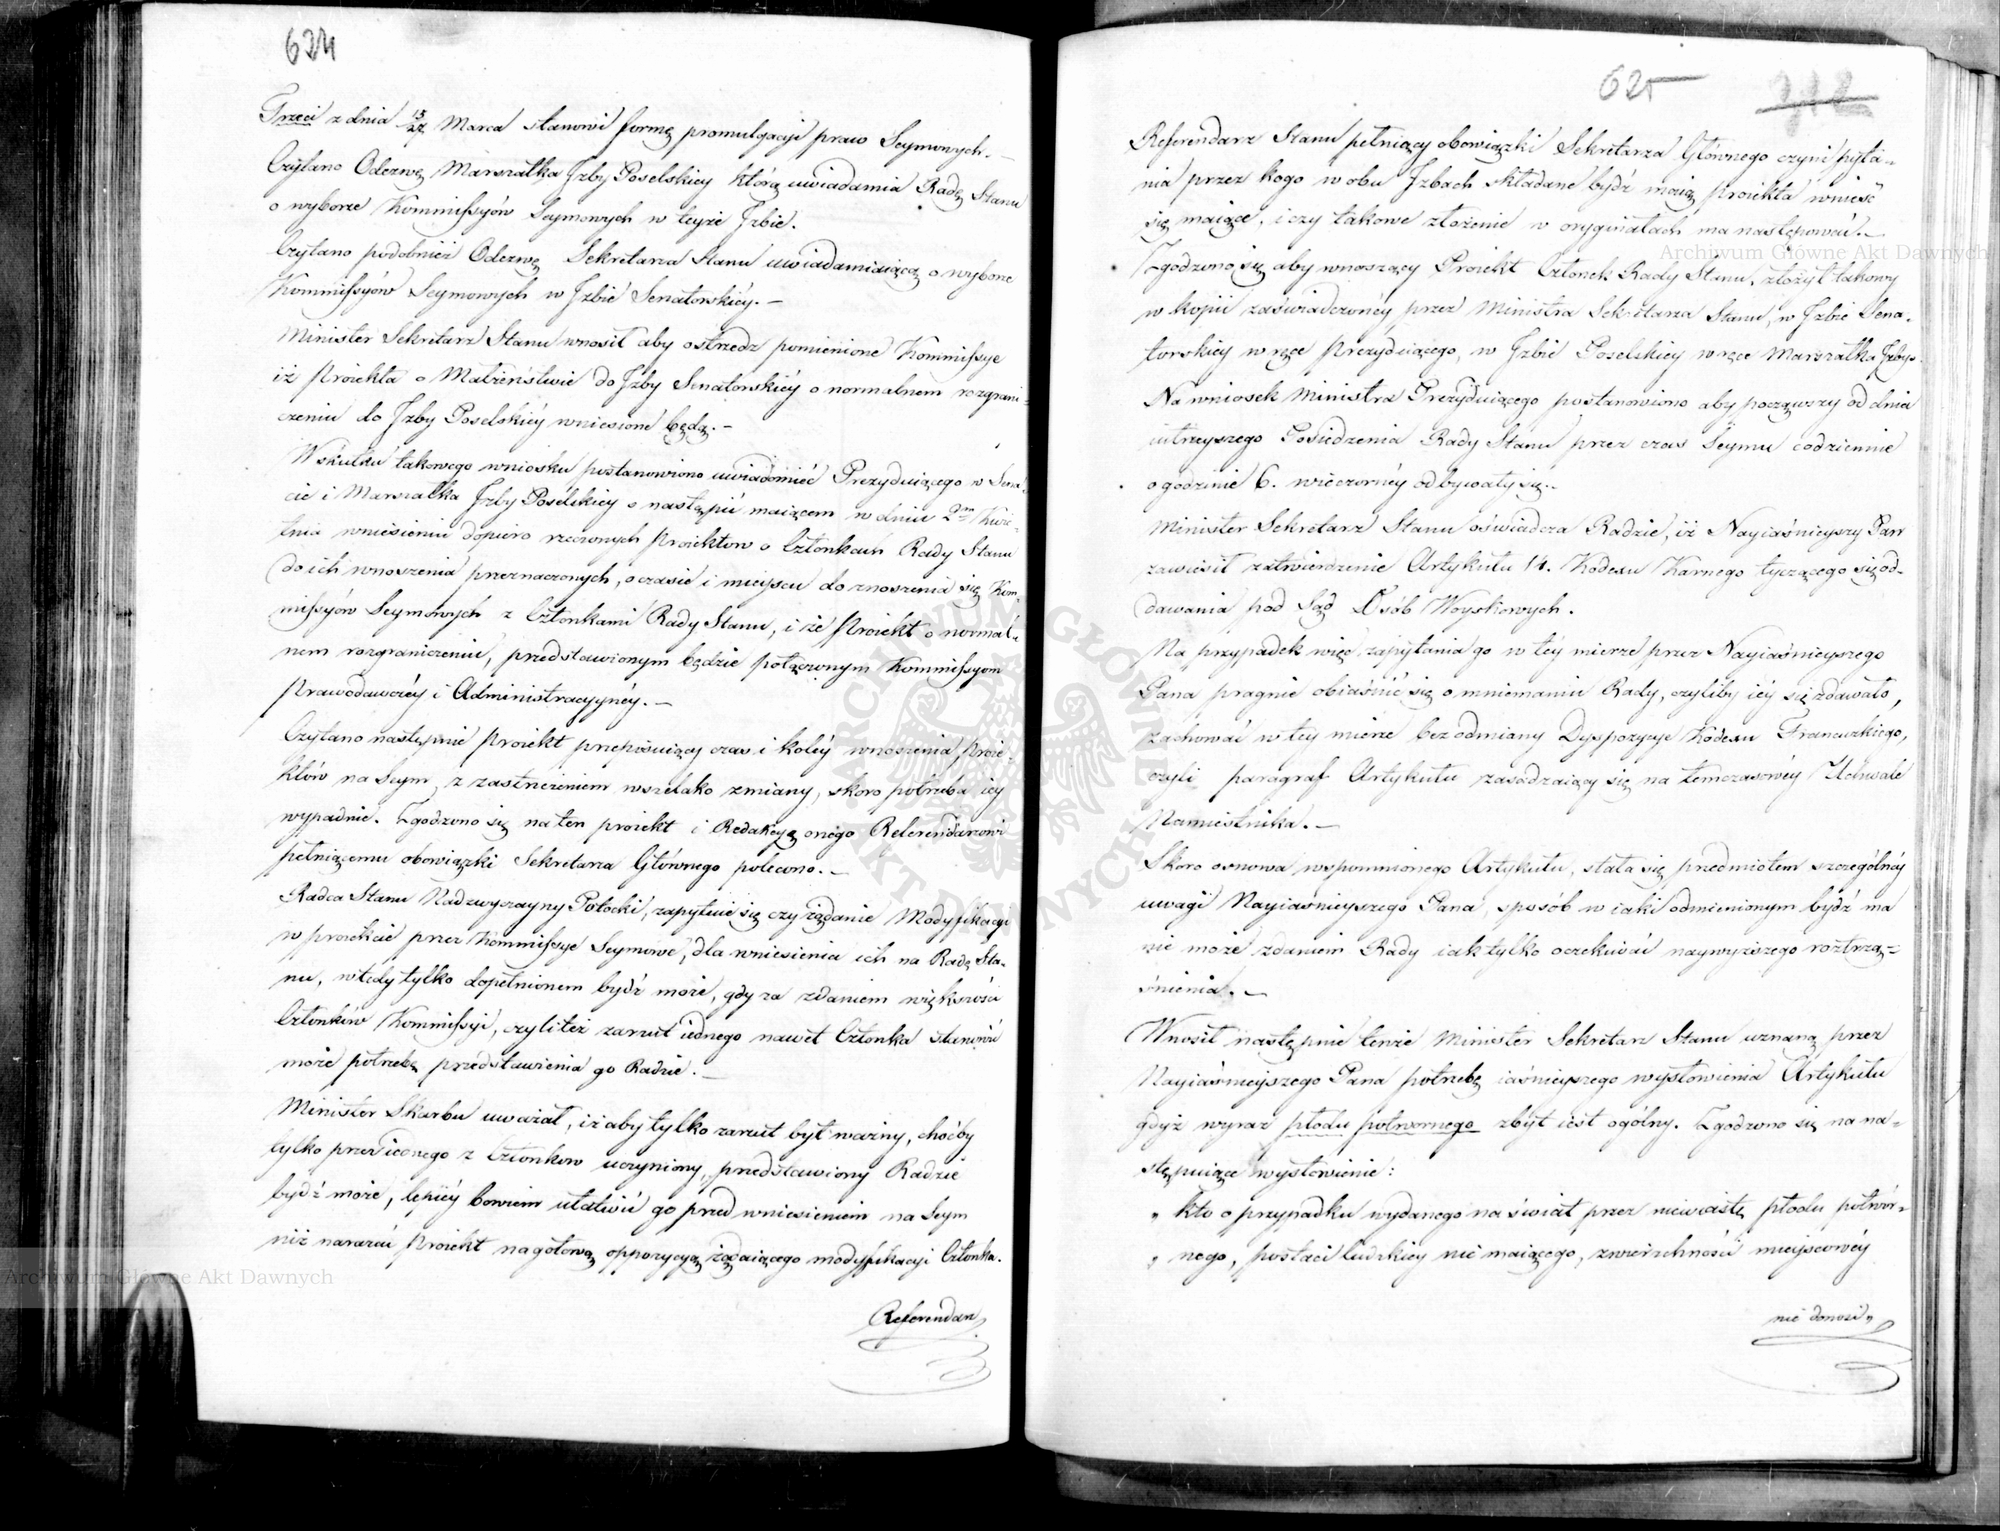 624
Trzeci z dnia 15/27 Marca stanowi formę promulgacyi praw Seymowych. —
Czytano Odezwę Marszałka Jzby Poselskiey którą uwiadamia Radę Stanu
o wyborze Kommissyów Seymowych w teyże Jzbie.
Czytano podobnież Odezwę Sekretarza Stanu uwiadamiaiącą o wyborze
Kommissyów Seymowych w Jzbie Senatorskiéy. —
Minister Sekretarz Stanu wnosił aby ostrzedz pomienione Kommissye
iż Proiekta o Małżeństwie do Jzby Senatorskiéy o normalnem rozgrani-
czeniu do Jzby Poselskiéy wniesione będą. —
W skutku takowego wniosku postanowiono uwiadomić Prezyduiącego w Sena-
cie i Marszałka Jzby Poselskiey o nastąpić maiącem w dniu 2m Kwie-
tnia wniesieniu dopiero rzeczonych Proiektow o Członkach Rady Stanu
do ich wnoszenia przeznaczonych, o czasie i mieyscu do znoszenia się Kom-
missyów Seymowych z Członkami Rady Stanu, i że Proiekt o normal-
nem rozgraniczeniu, przedstawionym będzie połączonym Kommissyom
Prawodawczéy i Administracyynéy. —
Czytano następnie Proiekt przepisuiący czas i koléy wnoszenia Proie-
któw na Seym, z zastrzeżeniem wszelako zmiany, skoro potrzeba iéy
wypadnie. Zgodzono się na ten proiekt i Redakcyą onego Referendarzowi
pełniącemu obowiązki Sekretarza Głównego polecono. —
Radca Stanu Nadzwyczayny Potocki, zapytuie się czy żądanie Modyfikacyi
w proiekcie przez Kommissye Seymowe, dla wniesienia ich na Radę Sta-
nu, wtedy tylko dopełnionem bydź może, gdy za zdaniem większości
Członków Kommissyi, czyli też zarzut iednego nawet Członka stanowić
może potrzebę przedstawienia go Radzie. —
Minister Skarbu uważał, iż aby tylko zarzut był ważny, choćby
tylko przez iednego z Członkow uczyniony, przedstawiony Radzie
bydź może, lepiéy bowiem ułatwić go przed wniesieniem na Seym
niż narazić Proiekt na gotową oppozycyą żądaiącego modyfikacyi Członka.
Referendarz
625
Referendarz Stanu pełniący obowiązki Sekretarza Głównego czyni pyta-
nia przez kogo w obu Jzbach składane bydź maią proiekta wnieść
się maiące, i czy takowe złożenie w oryginałach ma następować. —
Zgodzono się aby wnoszący Proiekt Członek Rady Stanu, złożył takowy
w kopii zaświadczonéy przez Ministra Sekretarza Stanu, w Jzbie Sena-
torskiey w ręce Prezyduiącego, w Jzbie Poselskiey w ręce Marszałka Jzby.
Na wniosek Ministra Prezyduiącego postanowiono aby począwszy od dnia
iutrzeyszego Posiedzenia Rady Stanu przez czas Seymu codziennie
o godzinie 6. wieczornéy odbywały się. —
Minister Sekretarz Stanu oświadcza Radzie, iż Nayiaśnieyszy Pan
zawiesił zatwierdzenie Artykułu 14. Kodexu Karnego tyczącego się od-
dawania pod Sąd Osób Woyskowych.
Na przypadek więc zapytania go w téy mierze przez Nayiaśnieyszego
Pana pragnie obiaśnić się o mniemaniu Rady, czyliby iéy się zdawało,
zachować w téy mierze bez odmiany Dyspozycye Kodexu Francuzkiego,
czyli paragraf Artykułu zasadzaiący się na tymczasowéy Uchwale
Namiestnika. —
Skoro osnowa wspomnionego Artykułu, stała się przedmiotem szczególnéy
uwagi Nayiaśnieyszego Pana, sposób w iaki odmienionym bydź ma
nie może zdaniem Rady iak tylko oczekiwać naywyższego roztrzą-
śnienia. —
Wnosił następnie tenże Minister Sekretarz Stanu uznaną przez
Nayiaśnieyszego Pana potrzebę iaśnieyszego wysłowienia Artykułu
gdyż wyraz płodu potwornego zbyt iest ogólny. Zgodzono się na na-
stępuiące wysłowienie:
„ kto o przypadku wydanego na świat przez niewiastę płodu potwor-
„ nego, postaci ludzkiey nie maiącego, zwierzchności mieyscowéy
nie donosi„
Archiwum Główne Akt Dawnych
Archiwum Główne Akt Dawnych
ARCHIWUM GŁÓWNE AKT DAWNYCH